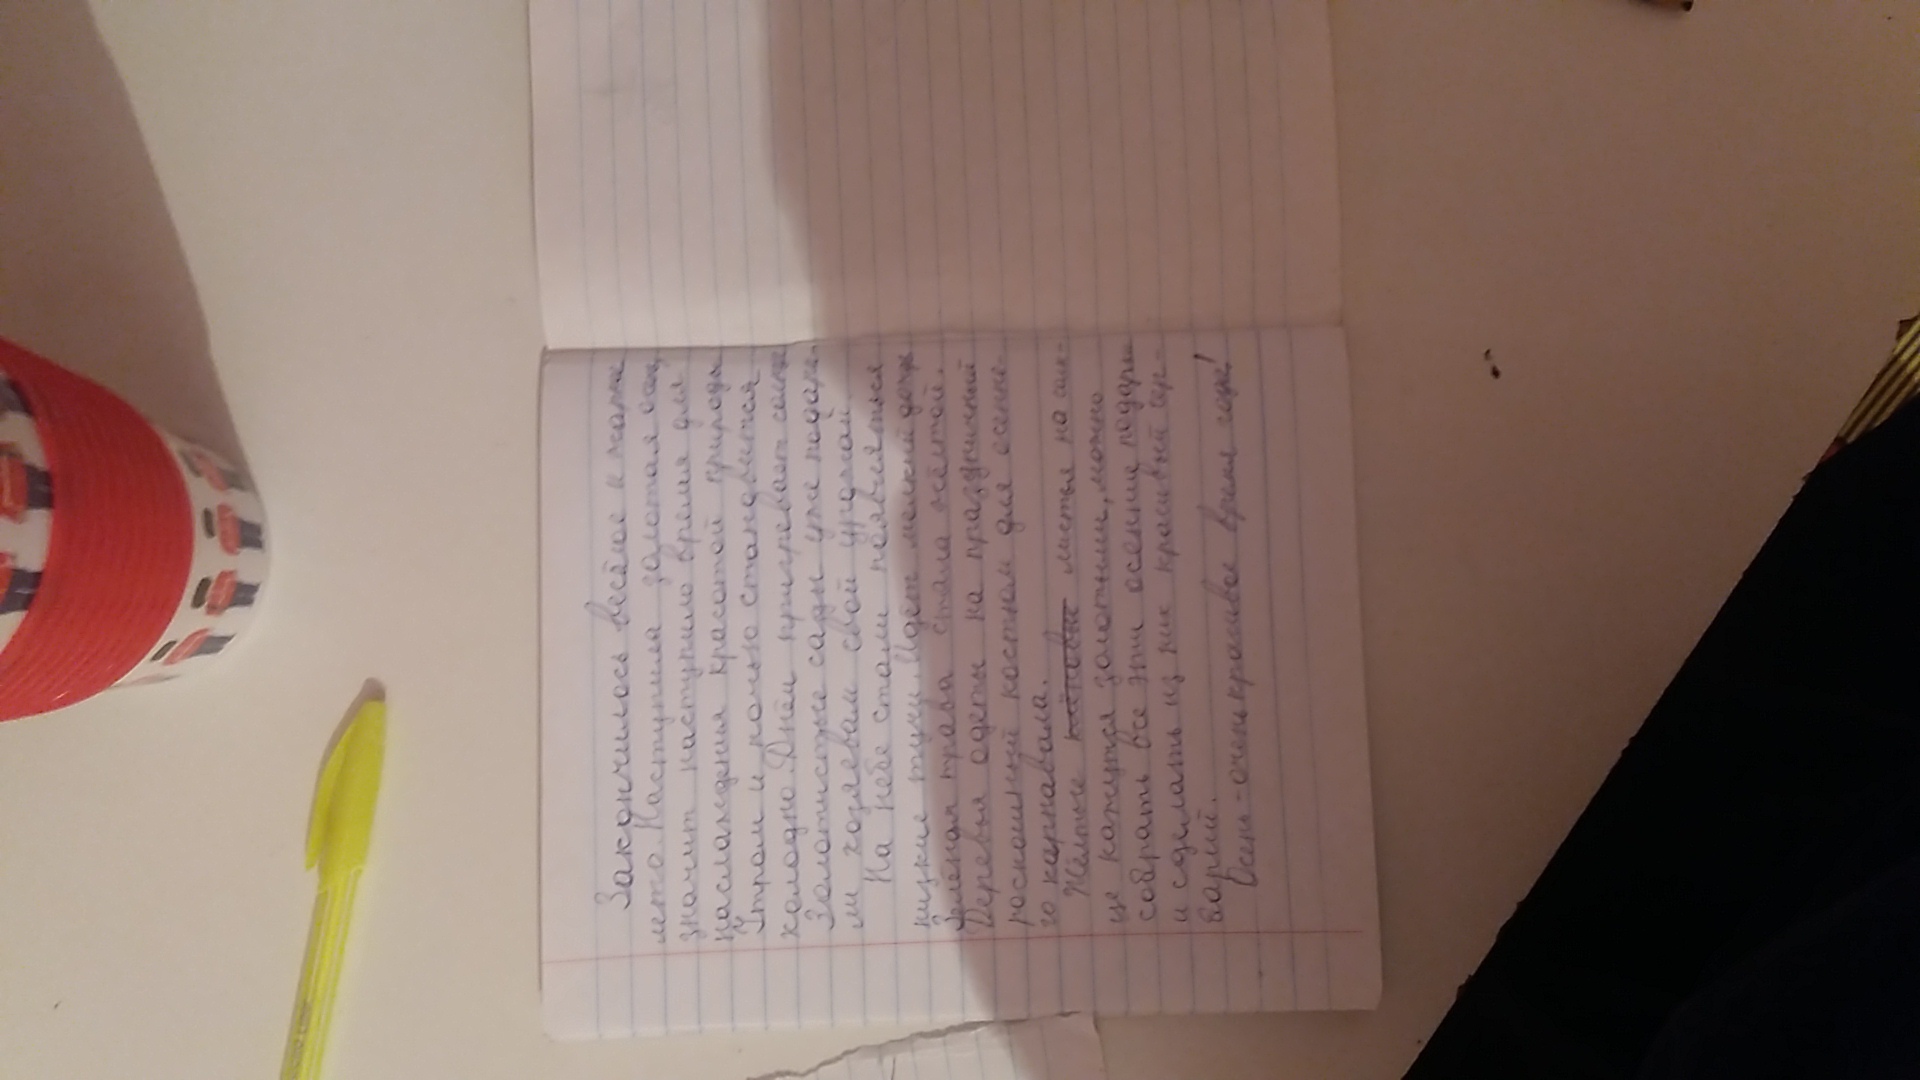 Закончилось весёлое и жаркое
лето. Наступила золотая осень,
значит наступило время для
наслаждения красотой природы
Утром и ночью становится
холодно. Днём пригревает солнце
Золотистые сады уже подаре-
м хозяевам свой урожай
На небе стали появляться
низкие тучи. Идёт мелкий дождь
Зелёная трава стала жёлтой.
Деревья одеты на праздничный
роскошный костюм для осенне-
го карнавала.
Жёлтые листья на солн-
це кажутся золотыми, можно
собрать все эти осенние подарки
и сделать из них красивый гер-
барий.
Осень - очень красивое время года!